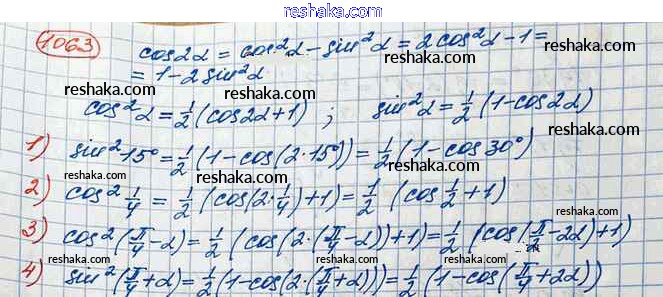 reshaka.com
1063
cos2α = cos²α - sin²α = 2cos²α - 1 =
reshaka.com
= 1 - 2sin²α
reshaka.com reshaka.com
cos²α = 1/2 (cos2α + 1) ; sin²α = 1/2 (1 - cos2α)
reshaka.com reshaka.com
1) sin²15° = 1/2 (1 - cos(2·15°)) = 1/2 (1 - cos30°)
reshaka.com reshaka.com reshaka.com
2) cos² 1/4 = 1/2 (cos(2·1/4) + 1) = 1/2 (cos 1/2 + 1)
reshaka.com reshaka.com reshaka.com
3) cos²(π/4 - α) = 1/2 (cos(2·(π/4 - α)) + 1) = 1/2 (cos(π/2 - 2α) + 1)
reshaka.com reshaka.com reshaka.com
4) sin²(π/4 + α) = 1/2 (1 - cos(2·(π/4 + α))) = 1/2 (1 - cos(π/4 + 2α))
reshaka.com